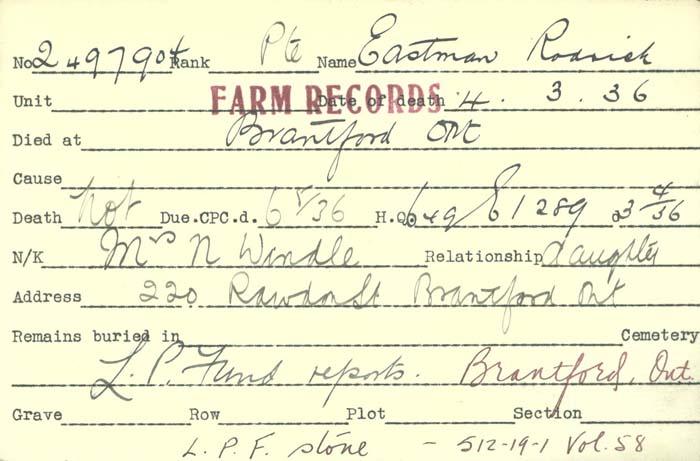 No 2497904 Rank Pte Name Eastman Rodrick
Unit FARM RECORDS Date of death 4. 3. 36
Died at Brantford Ont
Cause
Death not Due. CPC.d. 6 5/36 H.Q. 649 E 1289 d 3 4/36
N/K Mrs N Windle Relationship daughter
Address 220 Rawdon St Brantford Ont
Remains buried in Cemetery
L.P. Fund reports. Brantford, Ont.
Grave Row Plot Section
L.P.F. stone - 512-19-1 Vol. 58